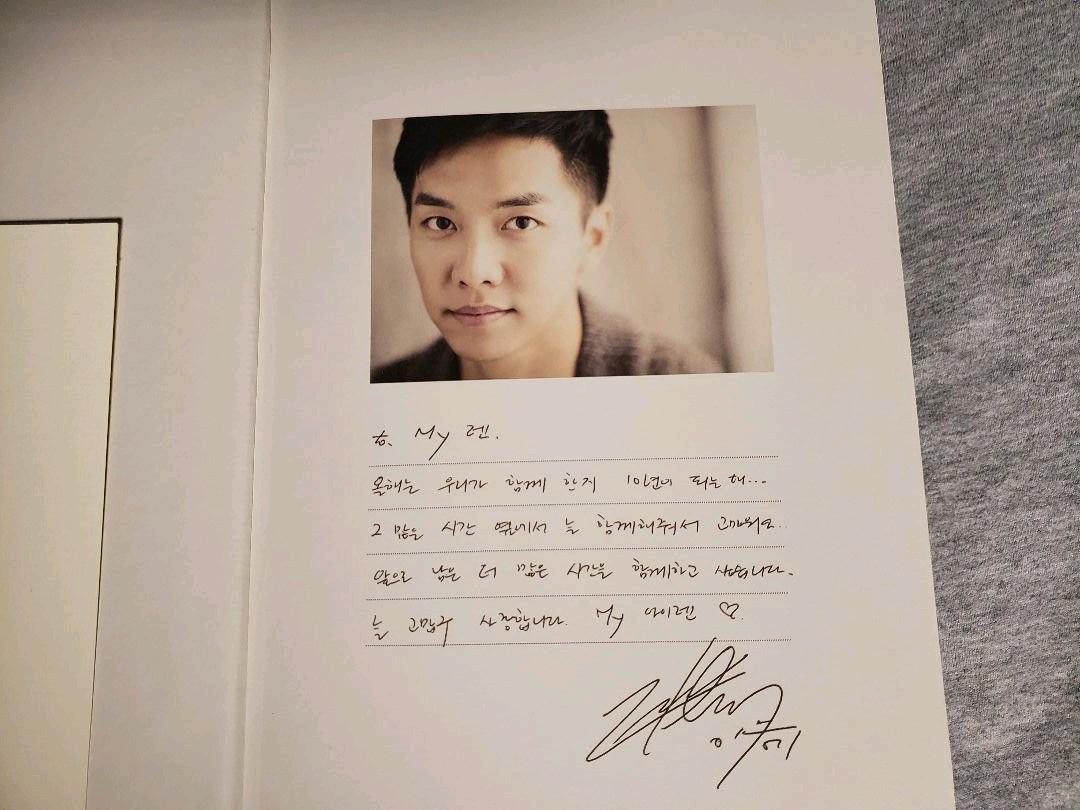 to. My 렌.
올해는 우리가 함께 한지 10년이 되는 해...
그 많은 시간 옆에서 늘 함께해줘서 고마워요..
앞으로 남은 더 많은 시간을 함께하고 싶습니다.
늘 고맙구 사랑합니다. My 아이렌 ♡.